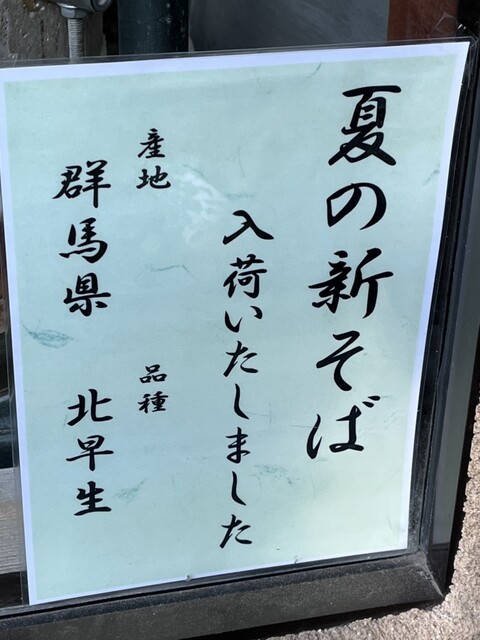 夏の新そば
入荷いたしました
産地
群馬県
品種
北早生